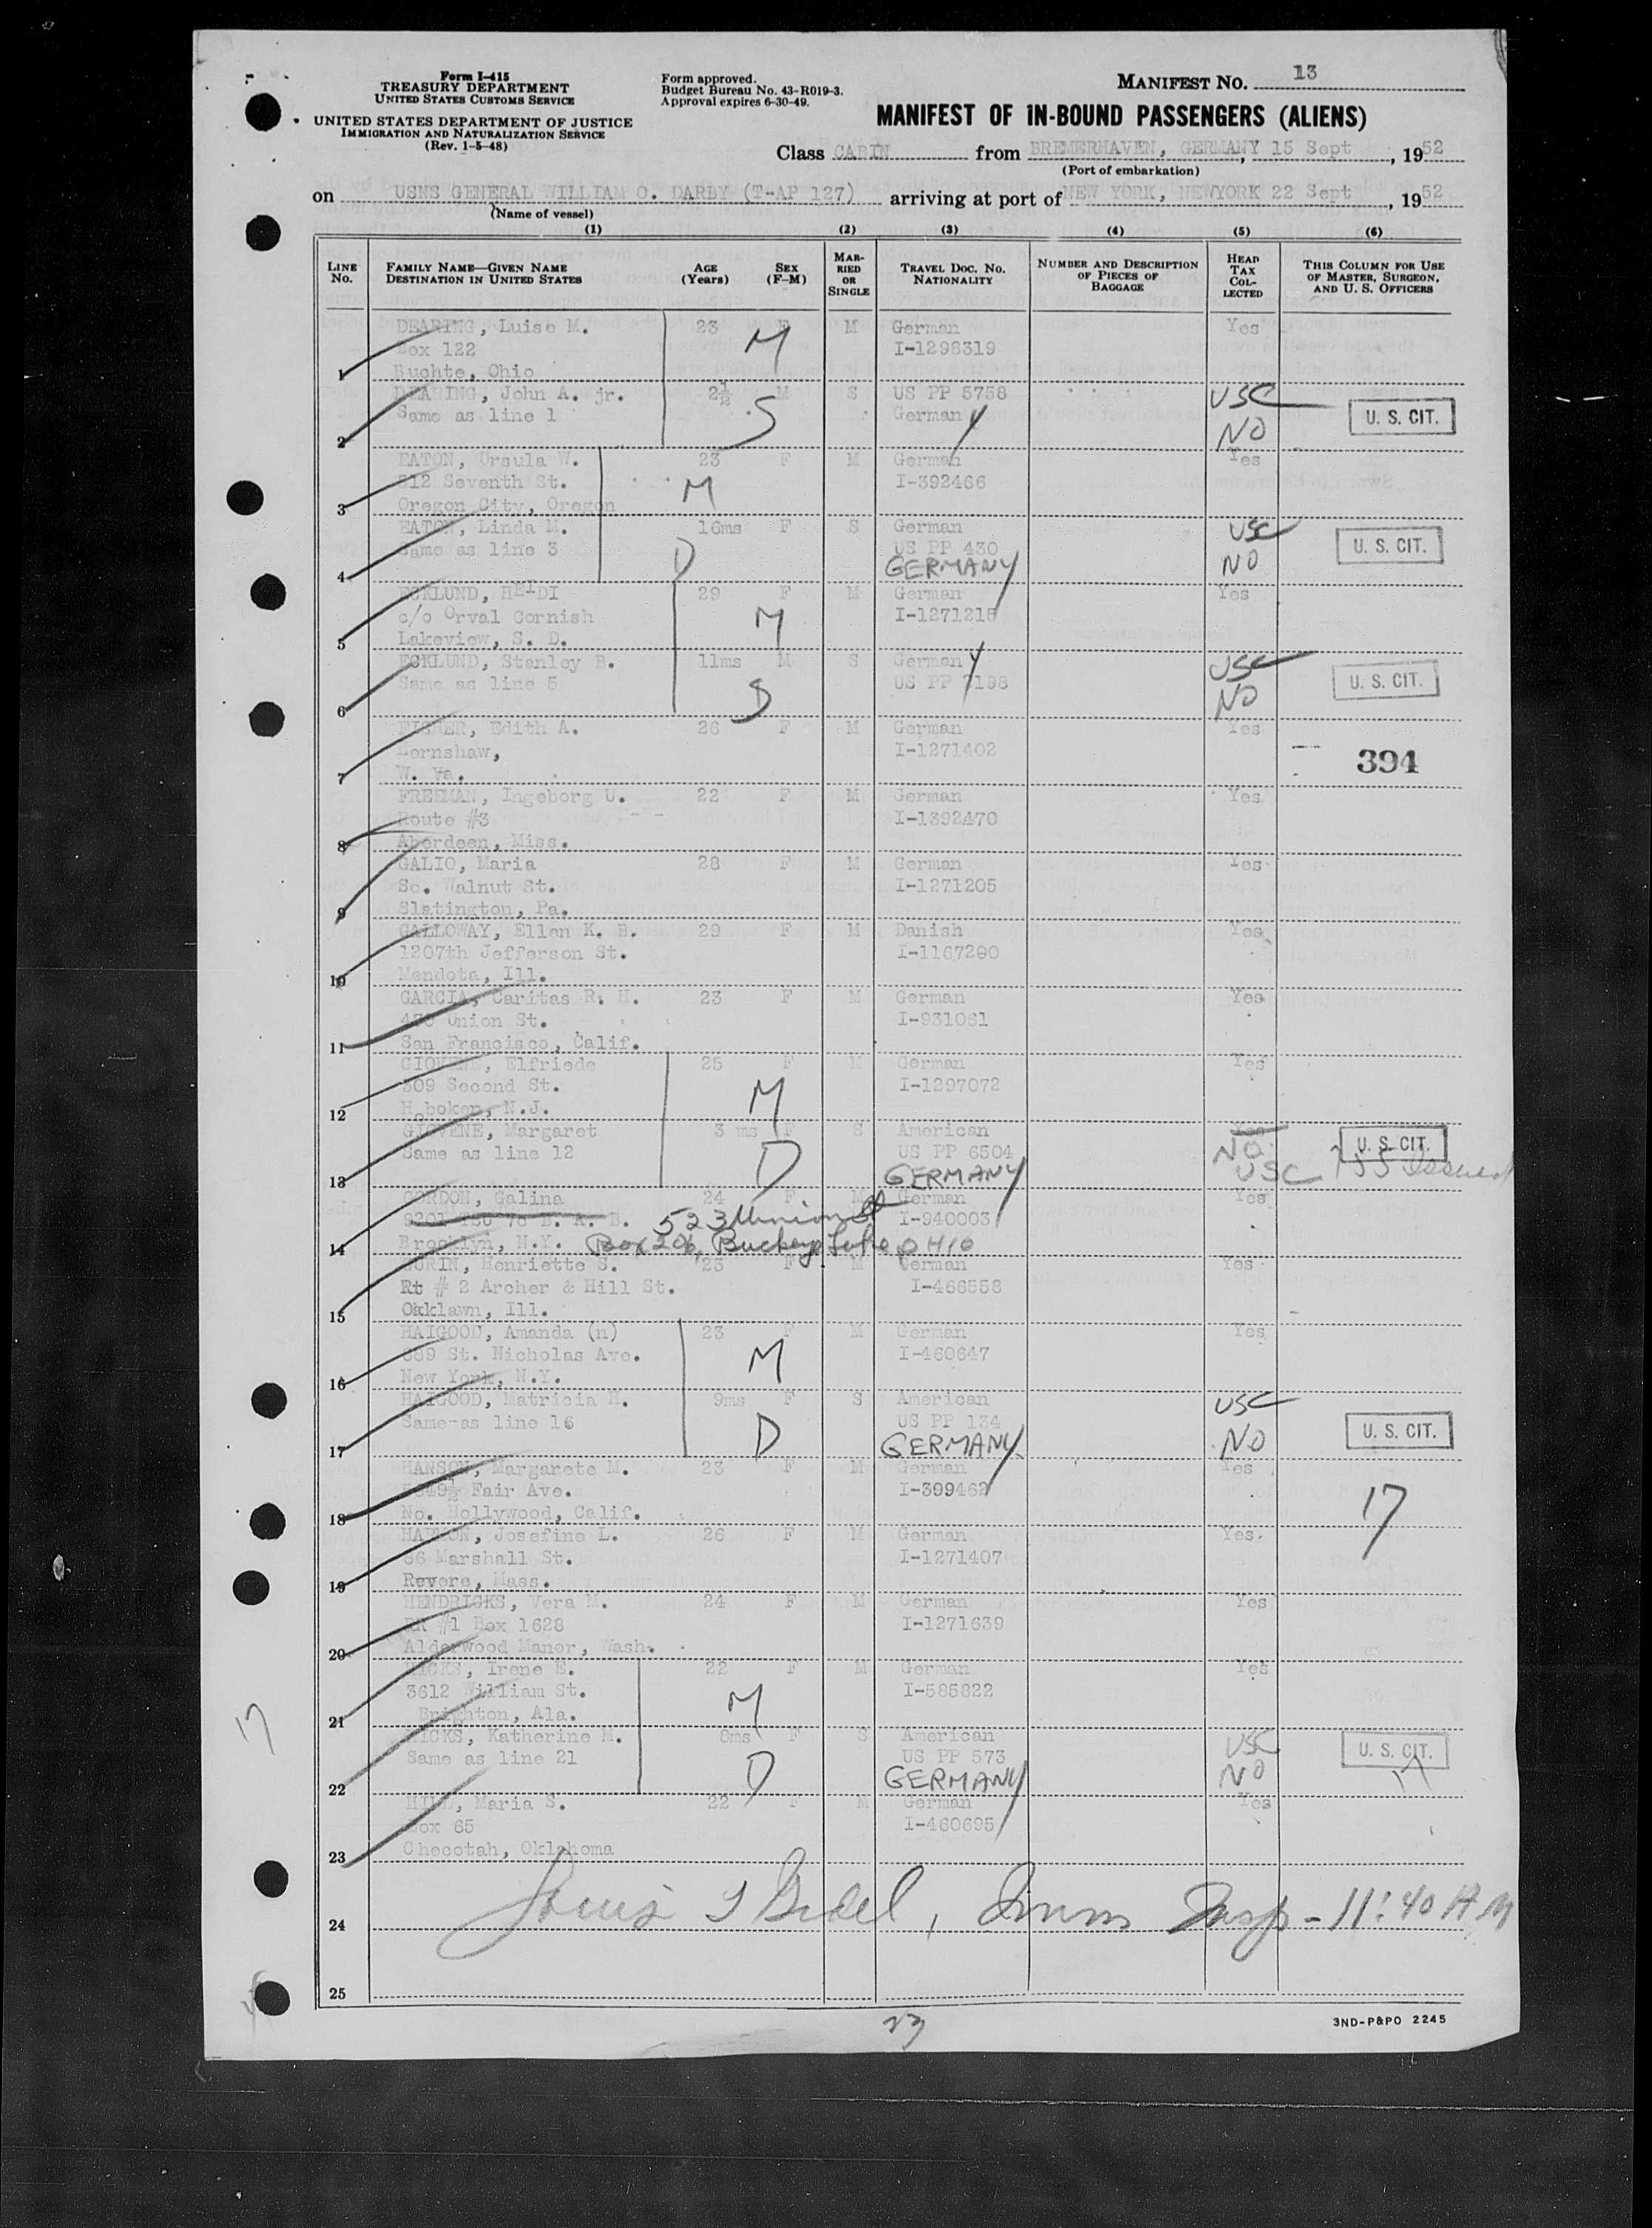 Form I-415
TREASURY DEPARTMENT
UNITED STATES CUSTOMS SERVICE
UNITED STATES DEPARTMENT OF JUSTICE
IMMIGRATION AND NATURALIZATION SERVICE
(Rev. 1-5-48)
Form approved.
Budget Bureau No. 43-R019-3.
Approval expires 6-30-49.
MANIFEST NO. 13
MANIFEST OF IN-BOUND PASSENGERS (ALIENS)
Class CABIN from BREMERHAVEN, GERMANY, 15 Sept, 1952
(Port of embarkation)
on USNS GENERAL WILLIAM O. DARBY (T-AP 127) arriving at port of NEW YORK, NEWYORK 22 Sept, 1952
(Name of vessel)
(1) (2) (3) (4) (5) (6)
LINE NO. FAMILY NAME—GIVEN NAME DESTINATION IN UNITED STATES AGE (Years) SEX (F-M) MARRIED OR SINGLE TRAVEL DOC. NO. NATIONALITY NUMBER AND DESCRIPTION OF PIECES OF BAGGAGE HEAD TAX COLLECTED THIS COLUMN FOR USE OF MASTER, SURGEON, AND U. S. OFFICERS
DEARING, Luise M. 23 F M German Yes
Box 122 M I-1298319
1 Buchte, Ohio
DEARING, John A. jr. 2½ M S US PP 5758 USC
Same as line 1 S Germany U. S. CIT.
2 NO
EATON, Ursula W. 23 F M German Yes
512 Seventh St. M I-392466
3 Oregon City, Oregon
EATON, Linda M. 16ms F S German USC
Same as line 3 D US PP 430 U. S. CIT.
4 GERMANY NO
ECKLUND, HEIDI 29 F M German Yes
c/o Orval Cornish M I-1271215
5 Lakeview, S. D.
ECKLUND, Stanley B. 11ms M S Germany USC
Same as line 5 S US PP 2198 U. S. CIT.
6 NO
FISHER, Edith A. 26 F M German Yes
Hornshaw, I-1271402 394
7 W. Va.
FREEMAN, Ingeborg U. 22 F M German Yes
Route #3 I-1392470
8 Aberdeen, Miss.
GALIO, Maria 28 F M German Yes
So. Walnut St. I-1271205
9 Slatington, Pa.
GALLOWAY, Ellen K. B. 29 F M Danish Yes
1207th Jefferson St. I-1167200
10 Mendota, Ill.
GARCIA, Caritas R. H. 23 F M German Yes
470 Union St. I-931061
11 San Francisco, Calif.
GIOVENE, Elfriede 25 F M German Yes
309 Second St. M I-1297072
12 Hoboken, N.J.
GIOVENE, Margaret 3 ms F S American Yes NO
Same as line 12 D US PP 6504 U. S. CIT.
13 GERMANY USC issued
GORDON, Galina 24 F M German Yes
523 Union St I-940003
14 Brooklyn, N.Y. Box 206, Buckeye Lake, OHIO
GORIN, Henriette S. 23 F M German Yes
Rt # 2 Archer & Hill St. I-466558
15 Oaklawn, Ill.
HAIGOOD, Amanda (n) 23 F M German Yes
889 St. Nicholas Ave. M I-460647
16 New York, N.Y.
HAIGOOD, Matricia M. 9ms F S American USC
Same as line 16 D US PP 134 U. S. CIT.
17 GERMANY NO
HANSON, Margarete M. 23 F M German Yes
5649½ Fair Ave. I-399462 17
18 No. Hollywood, Calif.
Josefine L. 26 F M German Yes
86 Marshall St. I-1271407
19 Revere, Mass.
HENDRICKS, Vera M. 24 F M German Yes
RR #1 Box 1628 I-1271639
20 Alderwood Maner, Wash.
HICKS, Irene E. 22 F M German Yes
3612 William St. M I-585822
21 Brighton, Ala.
HICKS, Katherine M. 8ms F S American USC
Same as line 21 D US PP 573 U. S. CIT.
22 GERMANY NO 17
HILL, Maria S. 22 F M German Yes
Box 65 I-460695
23 Checotah, Oklahoma
24 Louis Imm Insp - 11:40 A M
25
17
23
3ND-P&PO 2245